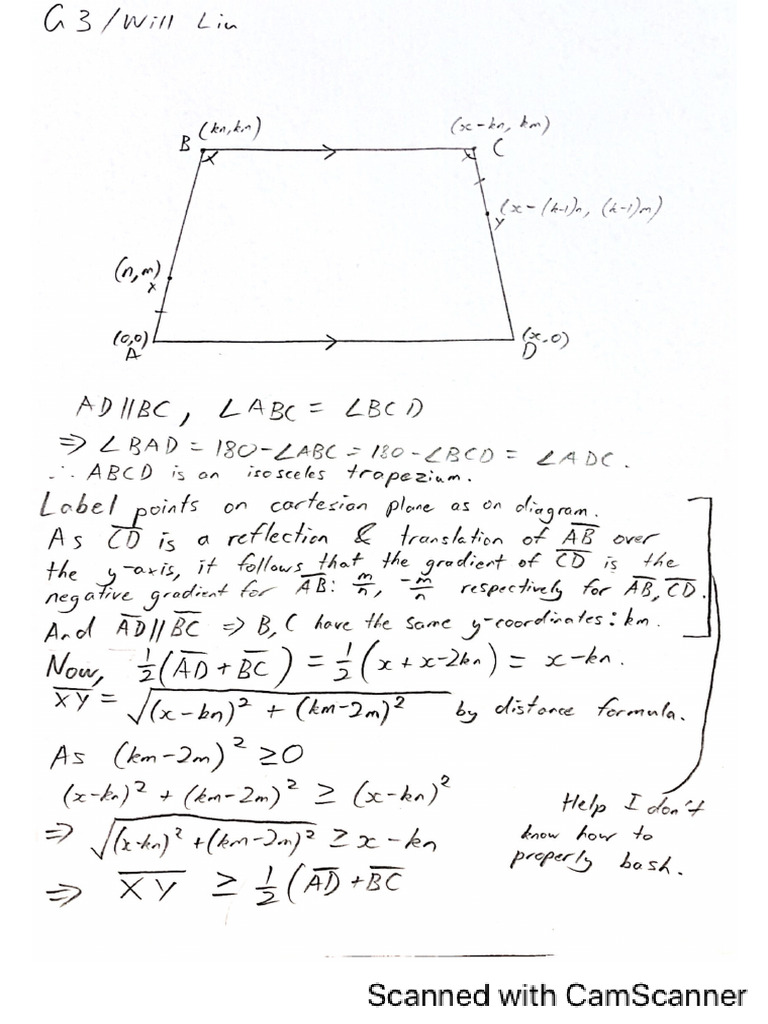 G3/Will Liu
B (kn,km)
(x-kn, km)
C
(x-(k-1)n, (k-1)m)
Y
(n,m)
X
(0,0)
A
(x,0)
D
AD//BC, ∠ABC = ∠BCD
⇒ ∠BAD = 180-∠ABC = 180-∠BCD = ∠ADC.
∴ ABCD is an isosceles trapezium.
Label points on cartesian plane as on diagram.
As C̅D̅ is a reflection & translation of A̅B̅ over
the y-axis, it follows that the gradient of C̅D̅ is the
negative gradient for A̅B̅: m/n, -m/n respectively for A̅B̅, C̅D̅.
And A̅D̅//B̅C̅ ⇒ B, C have the same y-coordinates: km.
Now, ½(A̅D̅+B̅C̅) = ½(x+x-2kn) = x-kn.
X̅Y̅ = √((x-kn)² + (km-2m)²) by distance formula.
As (km-2m)² ≥0
(x-kn)² + (km-2m)² ≥ (x-kn)²
⇒ √((x-kn)² +(km-2m)²) ≥ x-kn
⇒ X̅Y̅ ≥ ½(A̅D̅+B̅C̅
Help I don't
know how to
properly bash.
Scanned with CamScanner